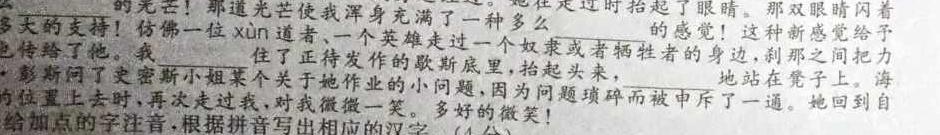 的光芒！那道光芒使我浑身充满了一种多么______的感觉！这种新感觉给予
多大的支持！仿佛一位xùn道者、一个英雄走过一个奴隶或者牺牲者的身边，刹那之间把力
也传给了他。我______住了正待发作的歇斯底里，抬起头来，______地站在凳子上。海
·彭斯问了史密斯小姐某个关于她作业的小问题，因为问题琐碎而被申斥了一通。她回到自
的位置上去时，再次走过我，对我微微一笑。多好的微笑！
给加点的字注音，根据拼音写出相应的汉字。（4分）